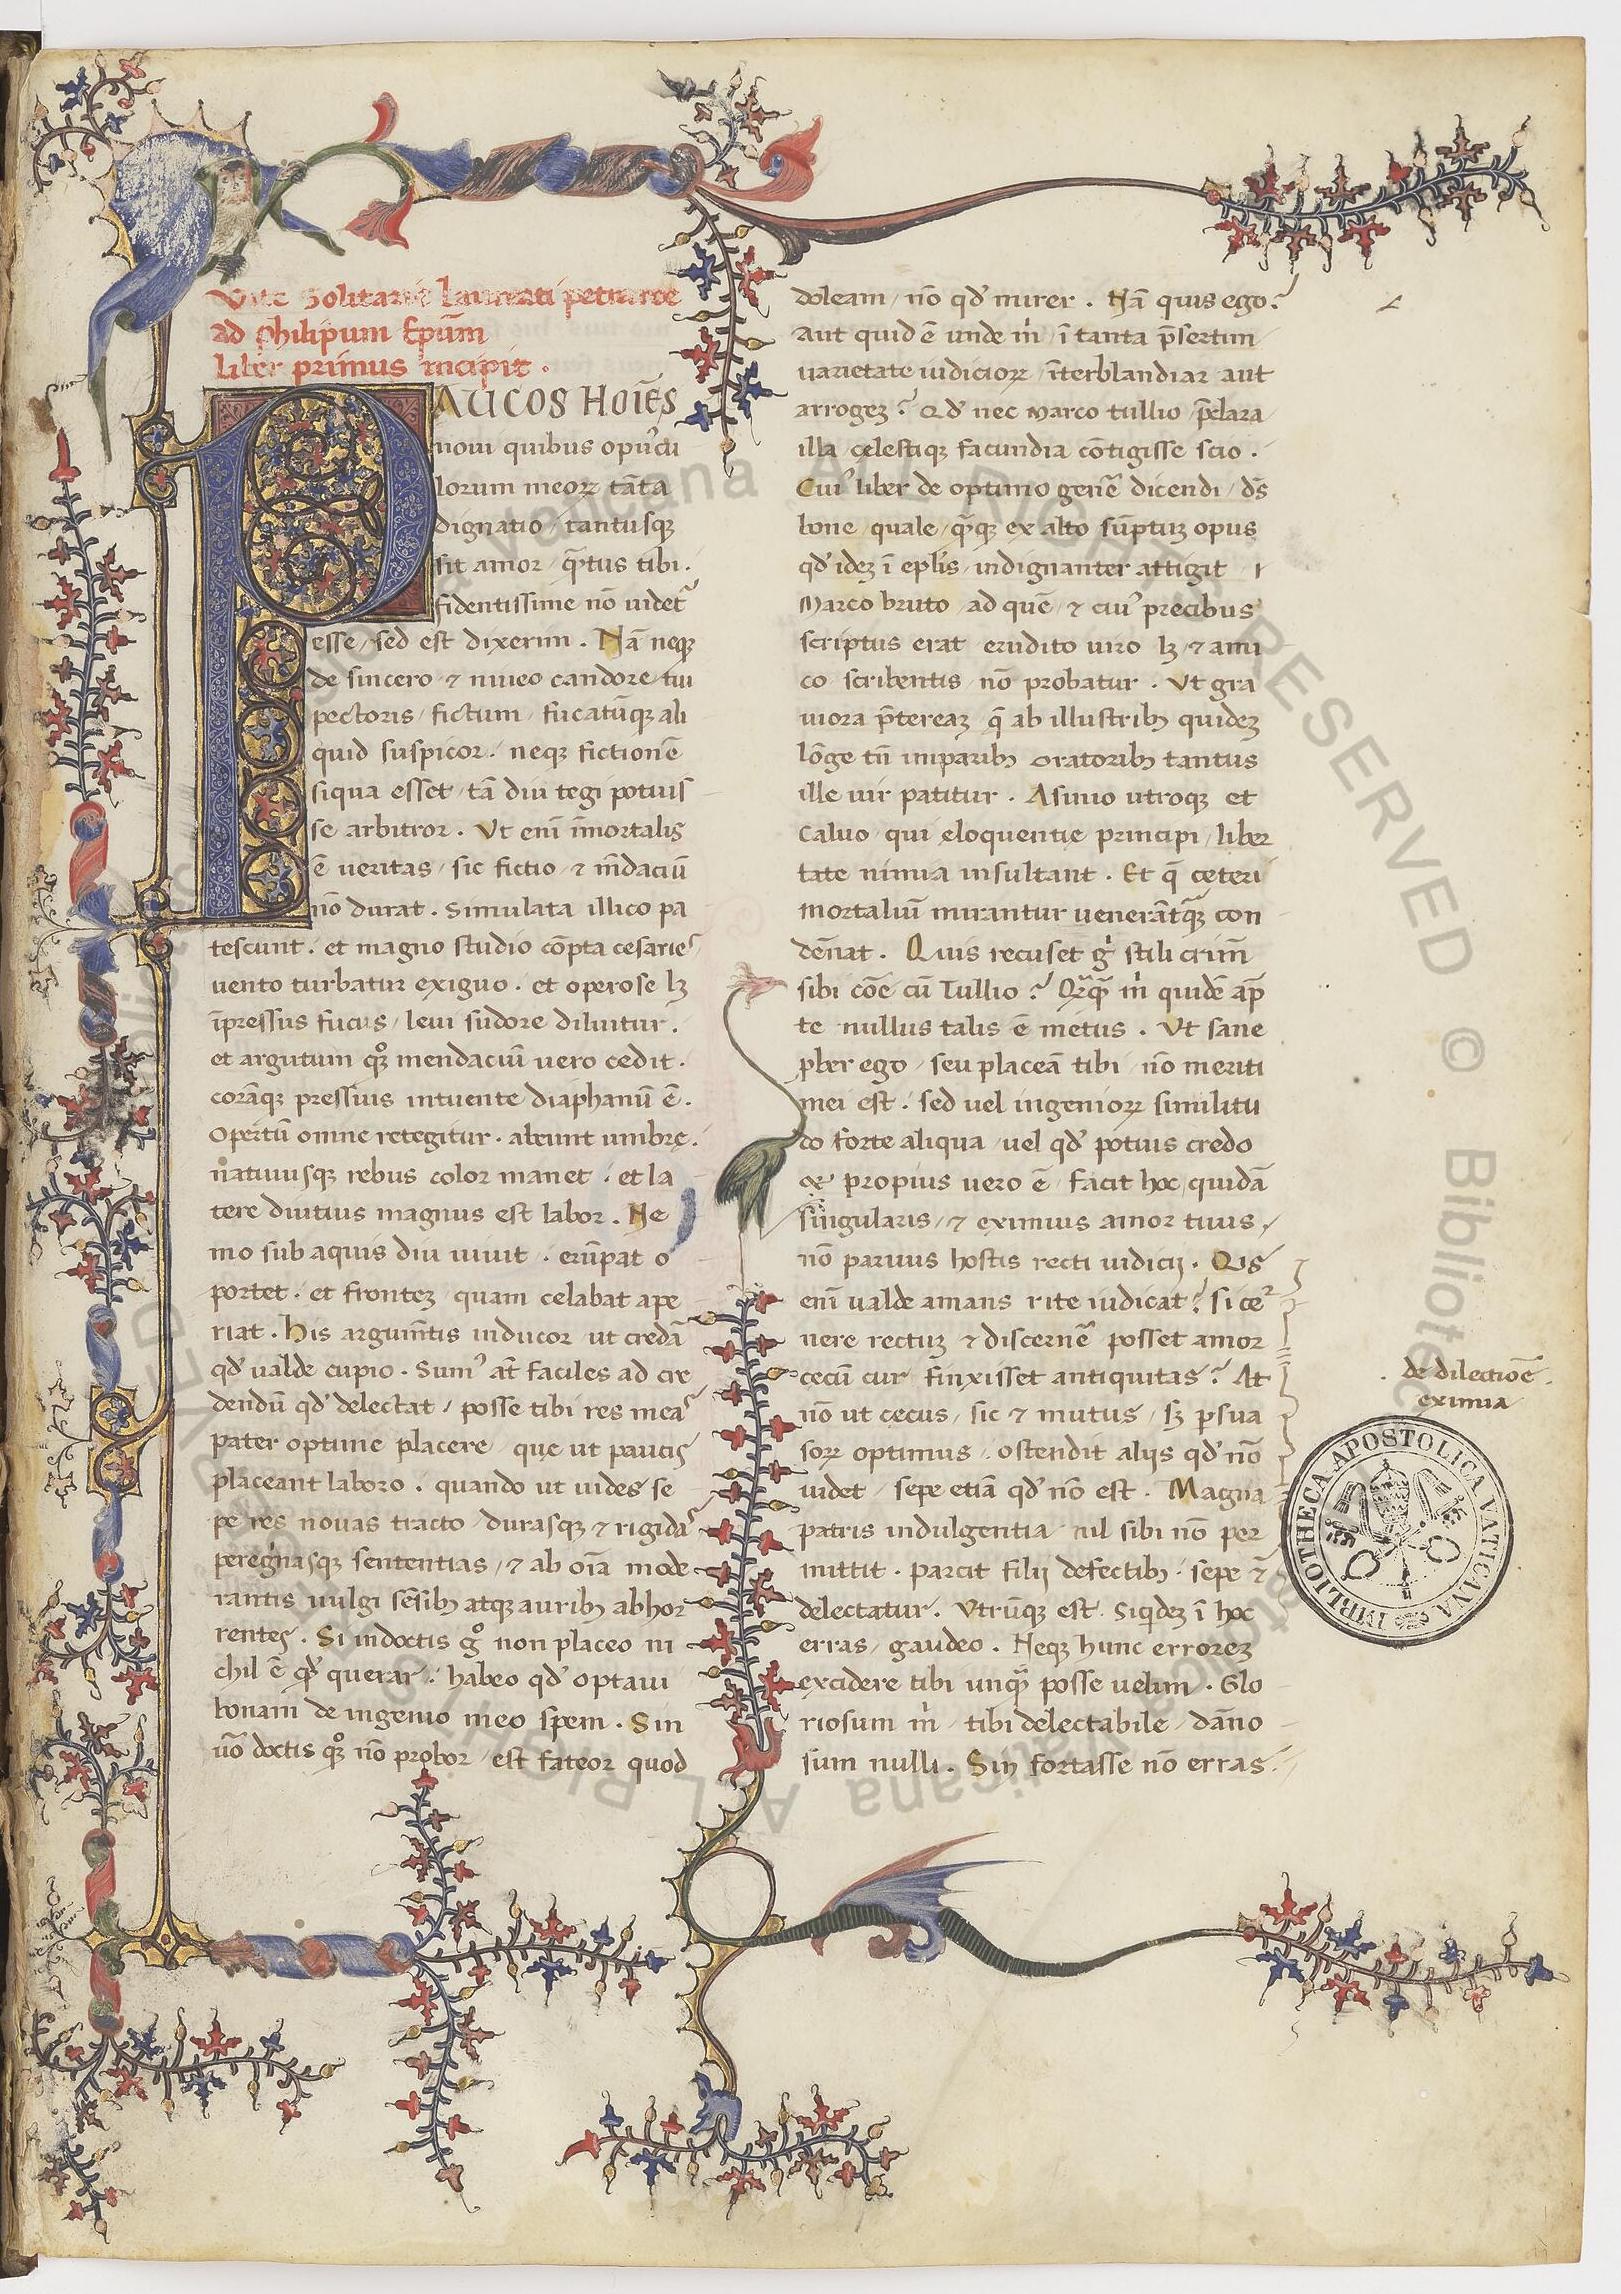 Vite Solitarie laureati petrarce
ad philipum Ep̄um
liber primus incipit .
PAUCOS HOĪES
noui quibus opuſcu
lorum meoꝝ tāta
dignatio / tantusqꝫ
sit amor / qȝtus tibi .
fidentissime nō uidet᷑
esse / sed est dixerim . Nā neqꝫ
de sincero ⁊ niueo candore tui
pectoris / fictum / fucatūqꝫ ali
quid suspicor . neqꝫ fictionē
siqua esset / tā diu tegi potuis
se arbitror . Ut eni īmortalis
ē ueritas / sic fictio / ⁊ m̄daciū
nō durat . Simulata illico pa
tescunt . et magno studio cōpta cesaries
uento turbatur exiguo . et operose lꝫ
īpressus fucus / leui sudore diluitur .
et argutum qꝫ mendaciū uero cedit .
corāqꝫ pressius intuente diaphanū ē .
Opertū omne retegitur . abeunt umbrę .
natiuusqꝫ rebus color manet . et la
tere diutius magnus est labor . Ne
mo sub aquis diu uiuit . erūpat o
portet . et frontez quam celabat ape
riat . His argum̄tis inducor ut credā
qd̓ ualde cupio . Sumꝰ at̄ faciles ad cre
dendū qd̓ delectat / posse tibi res meas
pater optime placere / quę ut paucis
placeant laboro . quando ut uides se
pe res nouas tracto / durasqꝫ ⁊ rigidas
peregrinasqꝫ sententias / ⁊ ab oīa mode
rantis uulgi sēsibꝫ atqꝫ auribꝫ abhor
rentes . Si indoctis gͦ non placeo ni
chil ē qd̓ querar . habeo qd̓ optaui
bonam de ingenio meo spem . Sin
uͦo doctis qꝫ nō probor / est fateor quod
doleam / nō qd̓ mirer . Nā quis ego ?
aut quid ē unde m̓ / ī tanta p̄sertim
uarietate iudicioꝝ / īterblandiar aut
arrogeꝫ ? Qd̓ nec Marco tullio / p̄clara
illa cęlestiqꝫ facundia cōtigisse scio .
Cuiꝰ liber de optimo genē dicendi / dꝰs
bone / quale / qȝqꝫ ex alto sūptuꝫ opus
qd̓ ideꝫ ī eplis / indignanter attigit /
Marco bruto / ad quē / ⁊ cuiꝰ precibus
scriptus erat / erudito uiro lꝫ ⁊ ami
co scribentis / nō probatur . Ut gra
uiora p̄tereaꝫ / q̄ ab illustribꝫ quideꝫ
lōge tn̄ imparibꝫ oratoribꝫ tantus
ille uir patitur . Asinio utroqꝫ et
Caluo / qui eloquentie principi / liber
tate nimia insultant . Et q̄ cęteri
mortaliū mirantur uenerātqꝫ con
dēnat . Quis recuset g̓ stili crim̄
sibi cōe cū Tullio ? Qȝqȝ m̓ quidē ap̄
te nullus talis ē metus . Ut sane
ꝓber ego / seu placeā tibi / nō meriti
mei est . sed uel ingenioꝝ similitu
do forte aliqua / uel qd̓ potius credo
⁊ propius uero ē / facit hoc / quidā
singularis / ⁊ eximius amor tuus /
nō paruus hostis recti iudicij . Qis
eni ualde amans rite iudicat ? si ce
nere rectuꝫ ⁊ discerne᷑ posset amor
cęcū cur finxisset antiquitas ? At
nō ut cęcus / sic ⁊ mutus / sꝫ ꝑsua
soꝝ optimus . ostendit alijs qd̓ nō
uidet / sepe etiā qd̓ nō est . Magna
patris indulgentia / nil sibi nō per
mittit . parcit filij defectibꝫ . sepe ⁊
delectatur . Utrūqꝫ est . Siqideꝫ ī hoc
erras / gaudeo . Neqꝫ hunc erroreꝫ
excidere tibi unqȝ posse uelim . Glo
riosum m̓ / tibi delectabile / dāno
sum nulli . Sin fortasse nō erras .
de dilectiōe
eximia
BIBLIOTHECA APOSTOLICA VATICANA